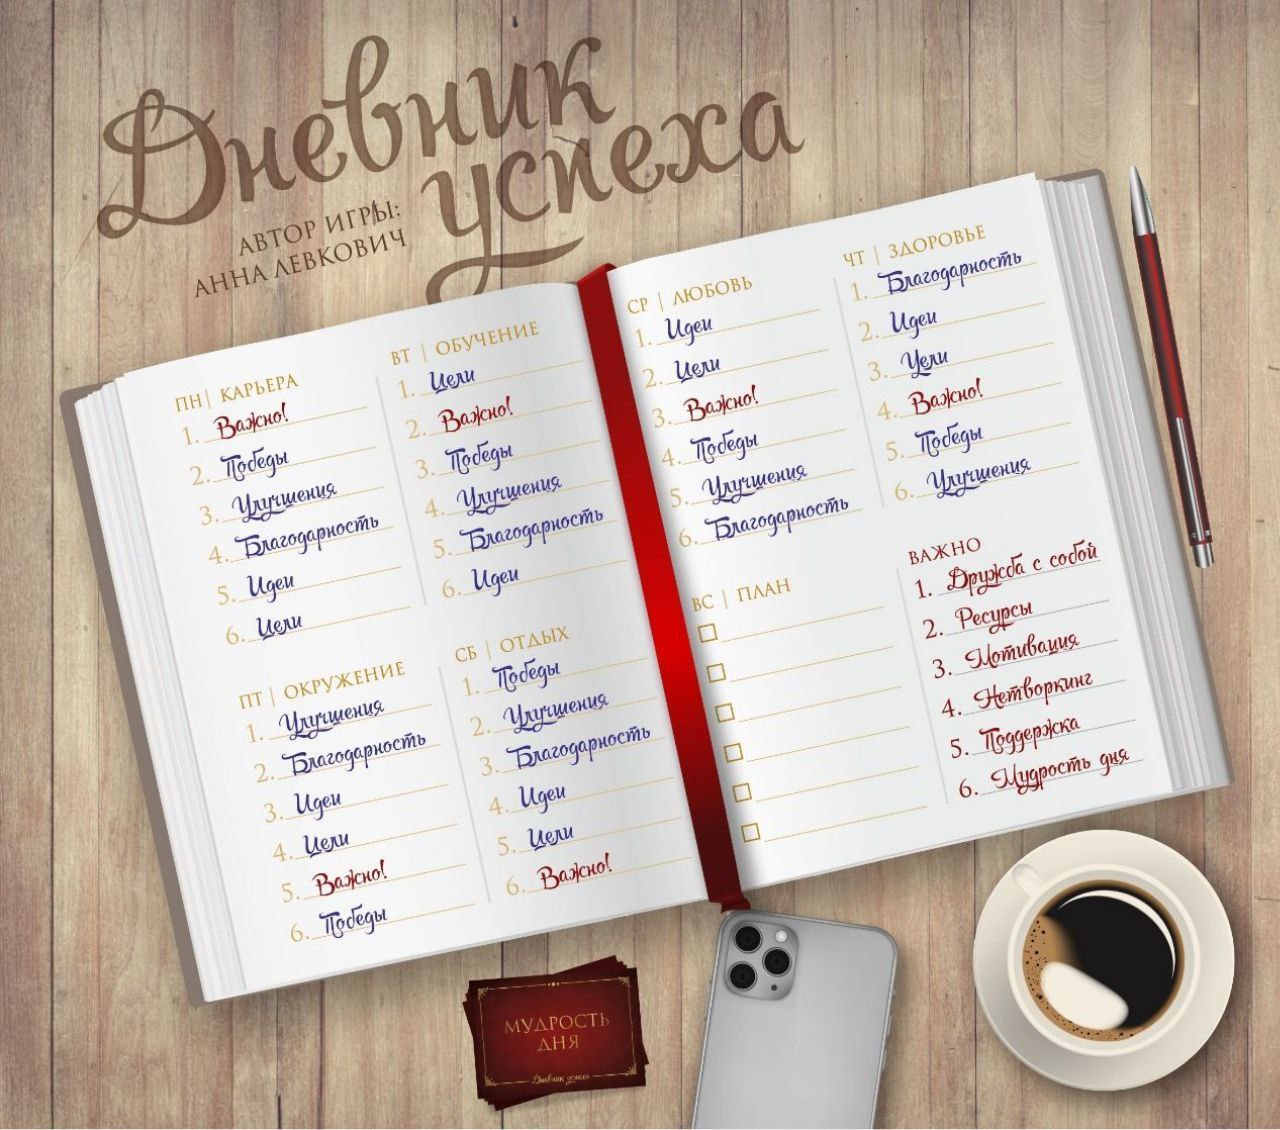 Дневник
успеха
АВТОР ИГРЫ:
АННА ЛЕВКОВИЧ
ПН | КАРЬЕРА
1. Важно!
2. Победы
3. Улучшения
4. Благодарность
5. Идеи
6. Цели
ВТ | ОБУЧЕНИЕ
1. Цели
2. Важно!
3. Победы
4. Улучшения
5. Благодарность
6. Идеи
ПТ | ОКРУЖЕНИЕ
1. Улучшения
2. Благодарность
3. Идеи
4. Цели
5. Важно!
6. Победы
СБ | ОТДЫХ
1. Победы
2. Улучшения
3. Благодарность
4. Идеи
5. Цели
6. Важно!
СР | ЛЮБОВЬ
1. Идеи
2. Цели
3. Важно!
4. Победы
5. Улучшения
6. Благодарность
ЧТ | ЗДОРОВЬЕ
1. Благодарность
2. Идеи
3. Цели
4. Важно!
5. Победы
6. Улучшения
ВС | ПЛАН
ВАЖНО
1. Дружба с собой
2. Ресурсы
3. Мотивация
4. Нетворкинг
5. Поддержка
6. Мудрость дня
МУДРОСТЬ
ДНЯ
Дневник успеха